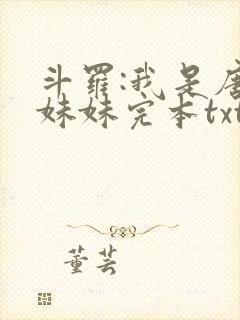 斗罗:我是唐
妹妹完本txt
董芸